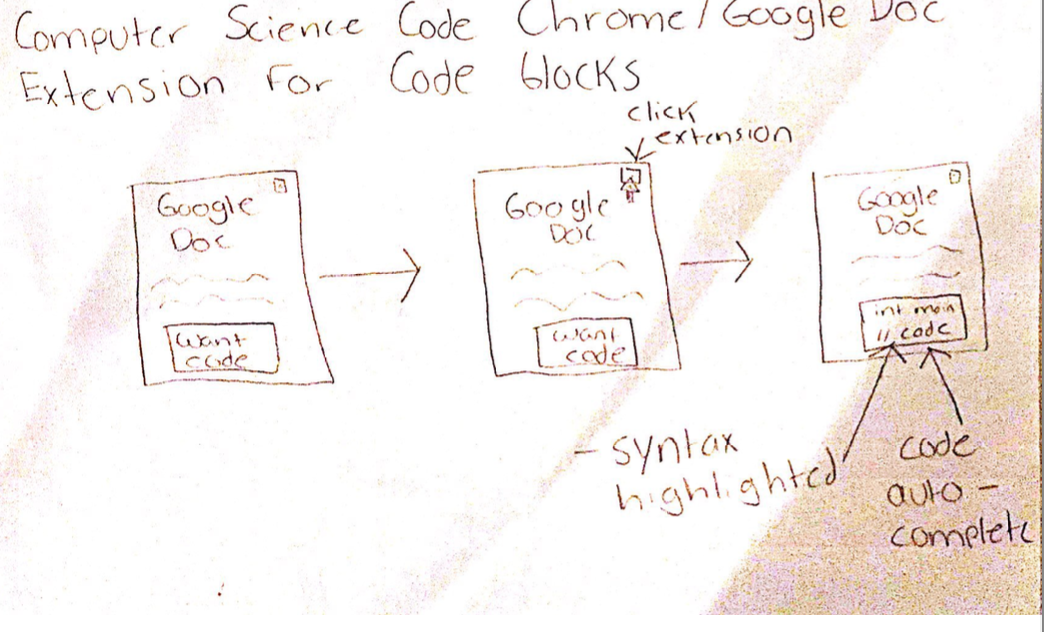 Computer Science Code Chrome/Google Doc
Extension For Code blocks
click
extension
Google
Doc
want
code
Google
Doc
want
code
Google
Doc
int main
// code
- syntax
highlighted
code
auto-
complete